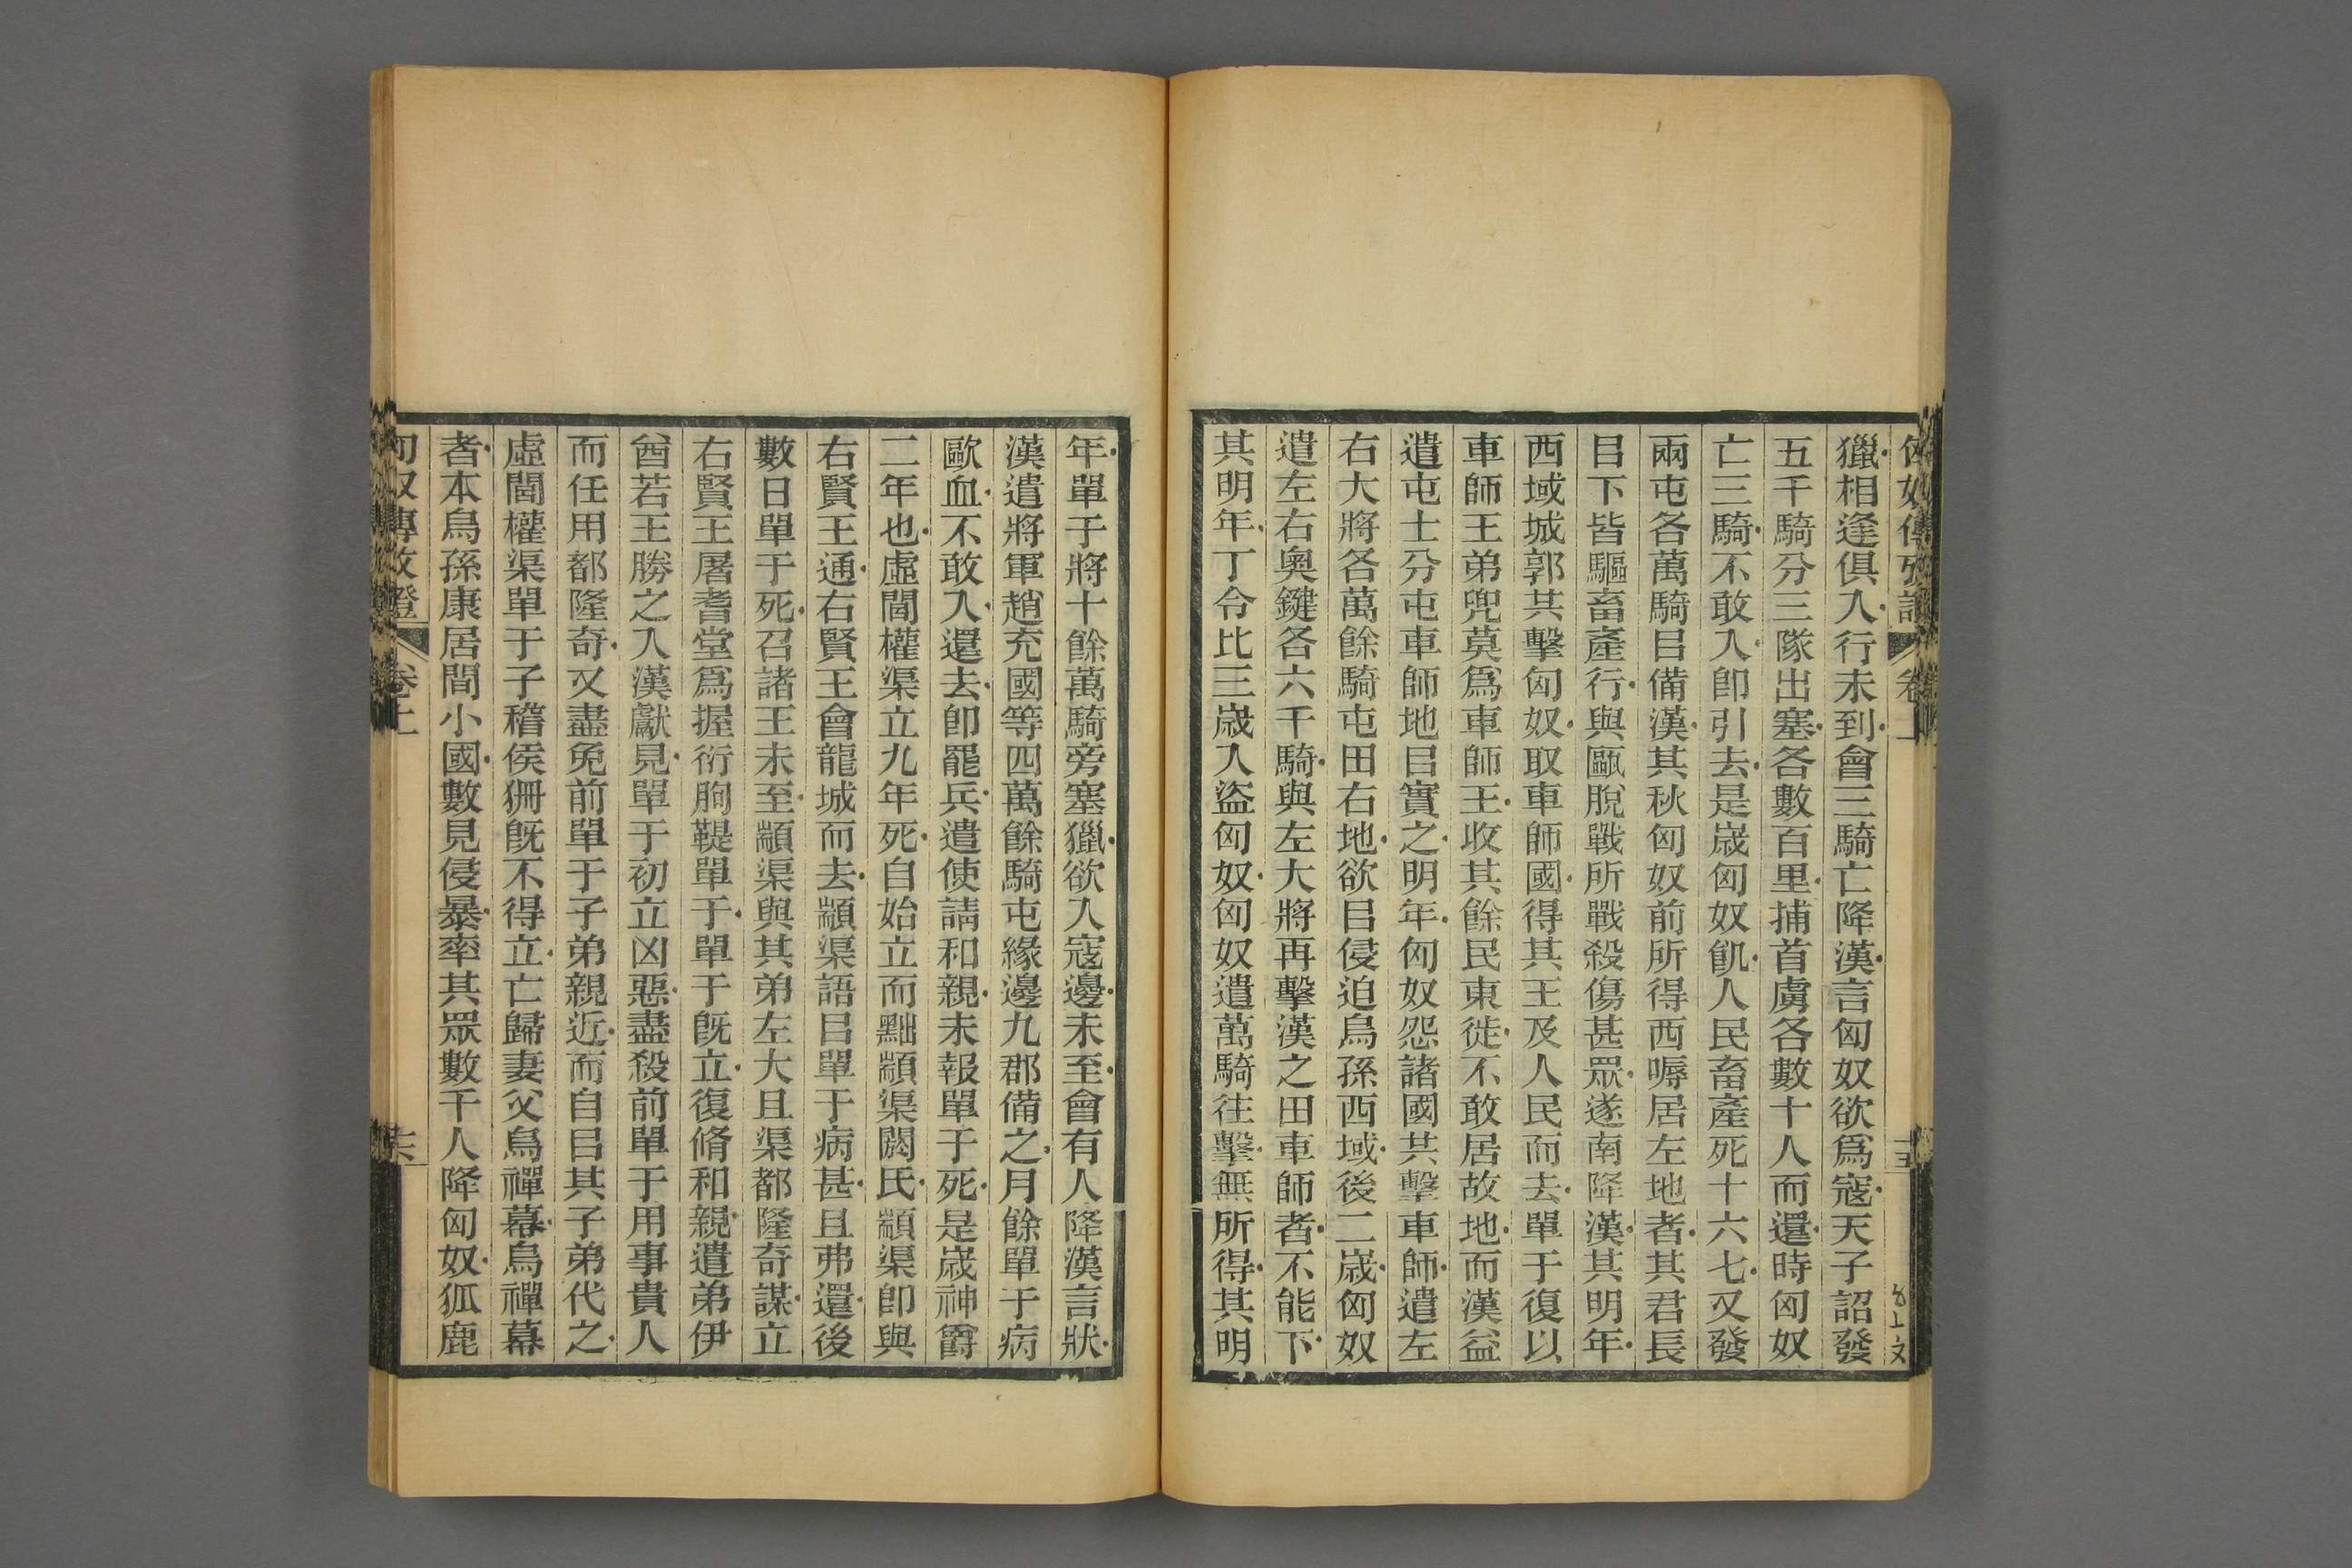 匈奴傳攷證 卷上
獵相逢俱入行未到會三騎亡降漢言匈奴欲爲寇天子詔發
五千騎分三隊出塞各數百里捕首虜各數十人而還時匈奴
亡三騎不敢入卽引去是歲匈奴飢人民畜產死十六七又發
兩屯各萬騎㠯備漢其秋匈奴前所得西嗕居左地者其君長
㠯下皆驅畜產行與甌脫戰所戰殺傷甚眾遂南降漢其明年
西域城郭共擊匈奴取車師國得其王及人民而去單于復以
車師王弟兜莫爲車師王收其餘民東徙不敢居故地而漢益
遣屯士分屯車師地㠯實之明年匈奴怨諸國共擊車師遣左
右大將各萬餘騎屯田右地欲㠯侵迫烏孫西域後二歲匈奴
遣左右奧鍵各六千騎與左大將再擊漢之田車師者不能下
其明年丁令比三歲入盜匈奴匈奴遣萬騎往擊無所得其明
年單于將十餘萬騎旁塞獵欲入寇邊未至會有人降漢言狀
漢遣將軍趙充國等四萬餘騎屯緣邊九郡備之月餘單于病
歐血不敢入還去卽罷兵遣使請和親未報單于死是歲神爵
二年也虛閭權渠立九年死自始立而黜顓渠閼氏顓渠卽與
右賢王通右賢王會龍城而去顓渠語㠯單于病甚且弗還後
數日單于死召諸王未至顓渠與其弟左大且渠都隆奇謀立
右賢王屠耆堂爲握衍朐鞮單于單于旣立復脩和親遣弟伊
酋若王勝之入漢獻見單于初立凶惡盡殺前單于用事貴人
而任用都隆奇又盡免前單于子弟親近而自㠯其子弟代之
虛閭權渠單于子稽侯狦旣不得立亡歸妻父烏禪幕烏禪幕
者本烏孫康居間小國數見侵暴率其眾數千人降匈奴狐鹿
匈奴傳攷證 卷上